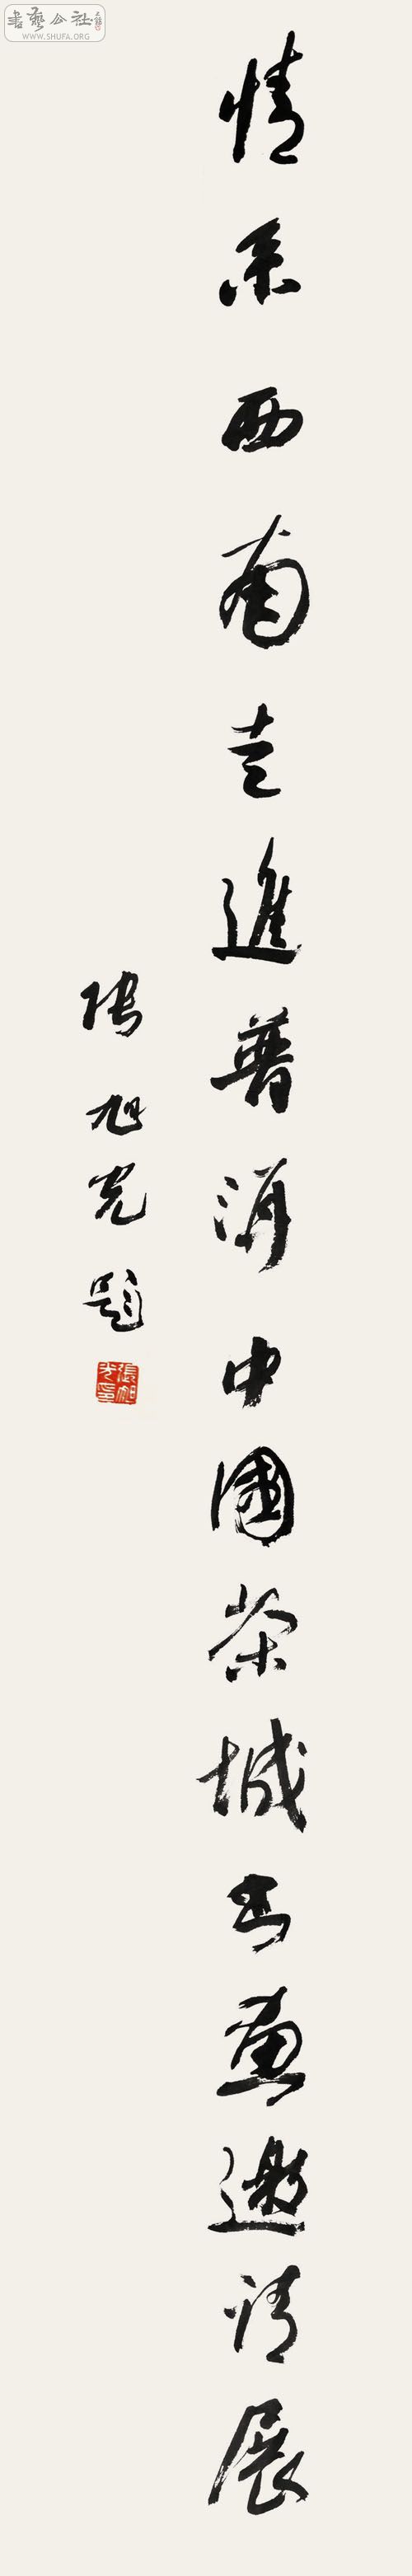 情系西南走進普洱中國茶城书畫邀请展
张旭光題
張旭光印
書藝公社
WWW.SHUFA.ORG